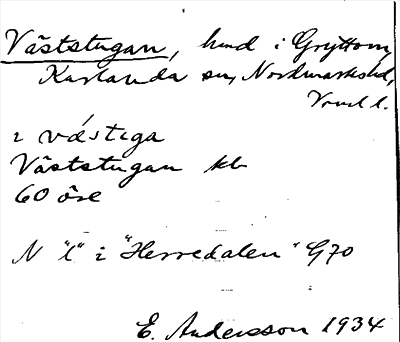 Väststugan, hmd i Gryttom,
Karlanda sn, Nordmarks hd,
Vrml l.
i vástiga
Väststugan kb
60 öre
N "l" i "Herredalen" G70
E. Andersson 1934